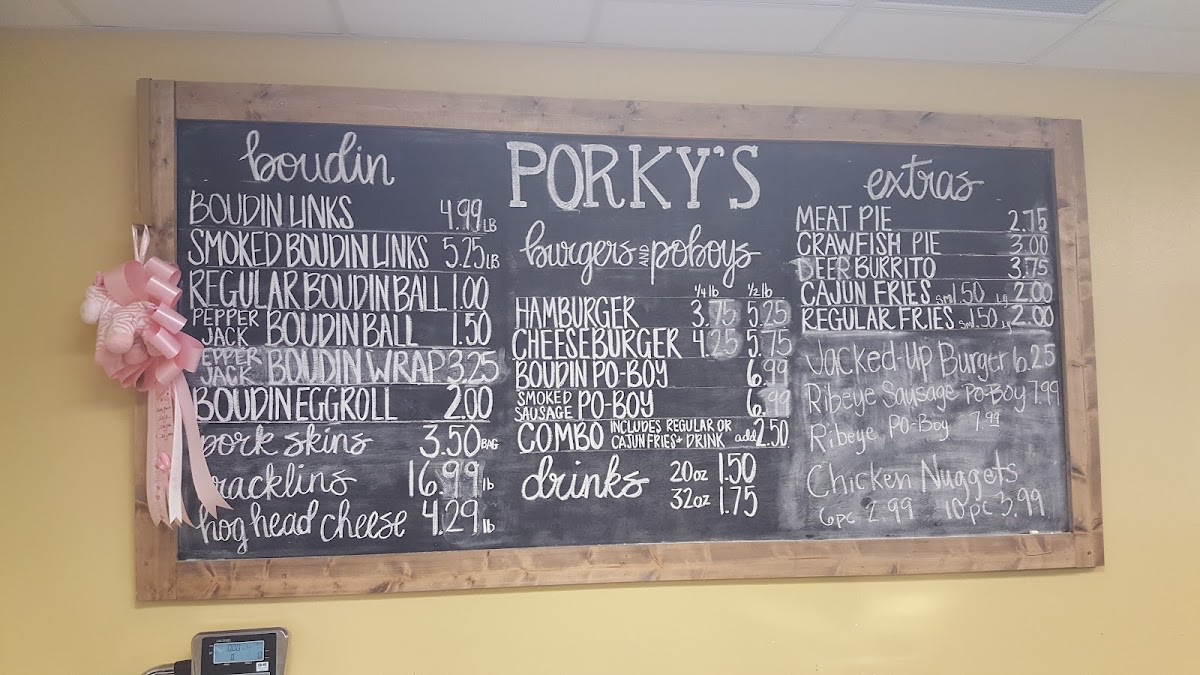 PORKY'S
boudin
BOUDIN LINKS 4.99 LB
SMOKED BOUDIN LINKS 5.25 LB
REGULAR BOUDIN BALL 1.00
PEPPER JACK BOUDIN BALL 1.50
PEPPER JACK BOUDIN WRAP 3.25
BOUDIN EGGROLL 2.00
pork skins 3.50 BAG
cracklins 16.99 lb
hog head cheese 4.29 lb
burgers AND poboys
1/4 lb 1/2 lb
HAMBURGER 3.75 5.25
CHEESEBURGER 4.25 5.75
BOUDIN PO-BOY 6.99
SMOKED SAUSAGE PO-BOY 6.99
COMBO INCLUDES REGULAR OR CAJUN FRIES + DRINK add 2.50
drinks 20oz 1.50
32oz 1.75
extras
MEAT PIE 2.75
CRAWFISH PIE 3.00
DEER BURRITO 3.75
CAJUN FRIES sm 1.50 Lg 2.00
REGULAR FRIES sm 1.50 Lg 2.00
Jacked-Up Burger 6.25
Ribeye Sausage Po-Boy 7.99
Ribeye Po-Boy 7.99
Chicken Nuggets
6pc 2.99 10pc 3.99